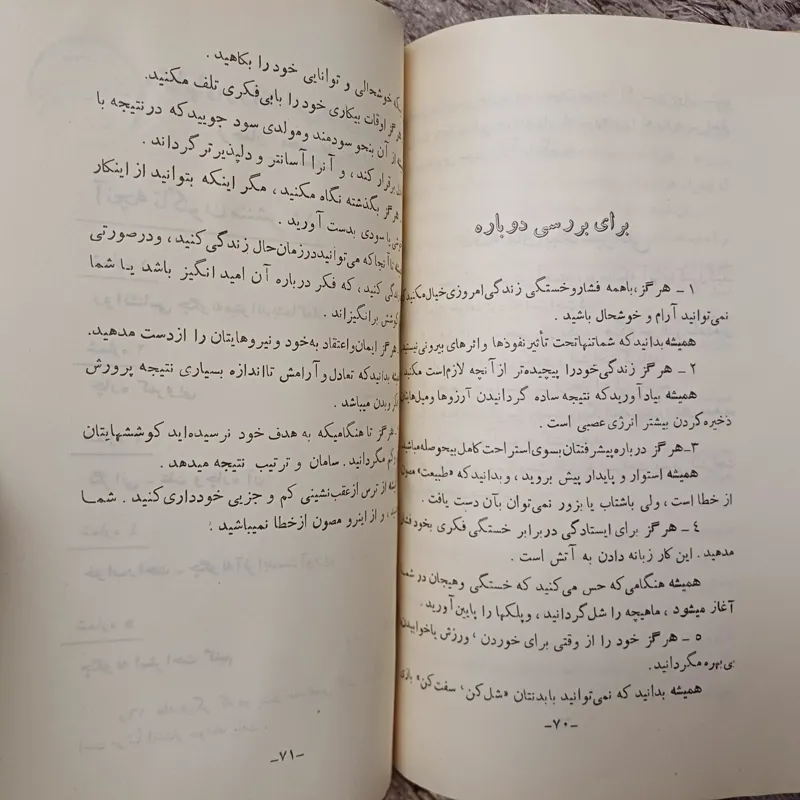 برای بررسی دوباره
۱ – هرگز، باهمه فشاروخستگی زندگی‌امروزی‌خیال‌مکنید
نمی‌توانید آرام و خوشحال باشید .
همیشه بدانیدکه شماتنهاتحت تأثیرنفوذها واثرهای بیرونی‌نیستید
۲ – هرگز زندگی‌خودرا پیچیده‌تر ازآنچه لازم‌است مکنید
همیشه بیادآوریدکه نتیجه ساده گردانیدن آرزوها ومیل‌هایتان
ذخیره‌کردن بیشتر انرژی‌عصبی است .
۳–هرگز درباره‌پیشرفتتان‌بسوی‌استراحت‌کامل‌بیحوصله‌مباشید
همیشه استوار و پایدار پیش بروید ، وبدانیدکه «طبیعت» مصون
از خطا است ، ولی باشتاب یا بزور نمی‌توان بآن دست یافت .
۴ – هرگز برای ایستادگی دربرابر خستگی فکری بخود فشار
مدهید . این کار زبانه دادن به آتش است .
همیشه هنگامی‌که حس می‌کنید که خستگی وهیجان در شما
آغاز میشود ، ماهیچه را شل‌گردانید ، وپلکها را پایین‌آورید .
۵ – هرگز خود را از وقتی برای خوردن ، ورزش یاخوابیدن
بی بهره مگردانید.
همیشه بدانید که نمی‌توانید بابدنتان «شل‌کن، سفت‌کن» بازی
–۷۰–
خوشحالی و توانایی خودرا بکاهید .
هرگز اوقات بیکاری خودرا بابی‌فکری تلف مکنید.
از آن بنحو سودمند ومولدی سود جوییدکه درنتیجه با
برقرار کند ، و آنرا آسانتر و دلپذیرترگرداند .
هرگز بگذشته نگاه مکنید ، مگر اینکه بتوانید از اینکار
یا سودی بدست آورید .
تا آنجاکه می‌توانیددرزمان‌حال زندگی‌کنید ، ودرصورتی
کنید ، که فکر درباره آن امید انگیز باشد یا شما
کوشش برانگیزاند .
هرگز ایمان‌واعتقاد به‌خود ونیروهایتان را ازدست مدهید.
بدانیدکه تعادل‌وآرامش تااندازه بسیاری نتیجه پرورش
وبدن میباشد .
هرگز تا هنگامیکه به هدف خود نرسیده‌اید کوششهایتان
کم مگردانید . سامان و ترتیب نتیجه میدهد .
از ترس ازعقب‌نشینی کم و جزیی خودداری‌کنید . شما
، و از اینرو مصون ازخطا نمیباشید :
–۷۱–